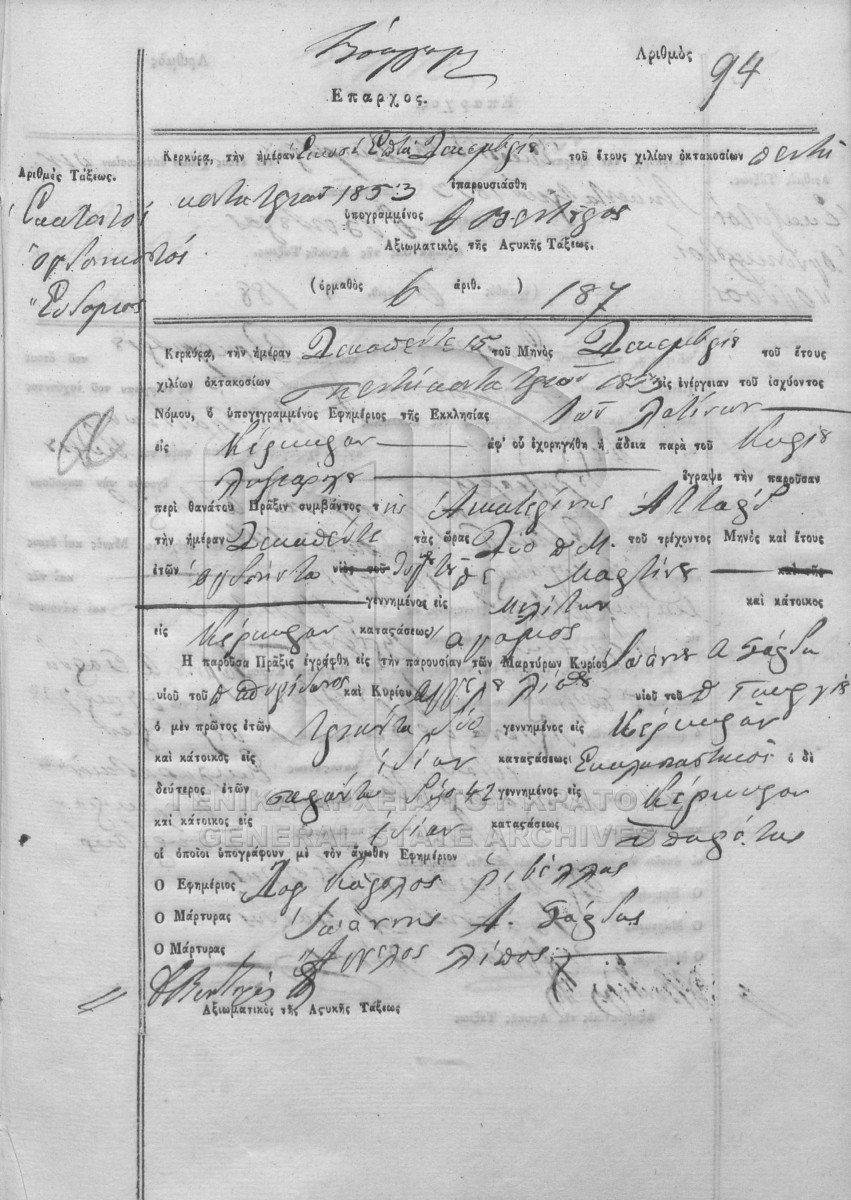 Αριθμὸς 94
Επαρχος.
Κερκύρα, τὴν ἡμέραν Εικοσι Επτά Δεκεμβρίου τοῦ ἔτους χιλίων ὀκτακοσίων πεντή
Αριθμὸς Τάξεως.
κοντα τρία 1853 ἐπαρουσιάσθη
Εκατοστός
ὑπογραμμένος
ογδοηκοστός
Αξιωματικὸς τῆς Αςυκῆς Τάξεως.
Εβδομος
(ὁρμαθὸς 6 ἀριθ. ) 187
Κερκύρα, τὴν ἡμέραν Δεκαπέντε 15 τοῦ Μηνὸς Δεκεμβρίου τοῦ ἔτους
χιλίων ὀκτακοσίων πεντήκοντα τρία 1853 εἰς ἐνέργειαν τοῦ ἰσχύοντος
Νόμου, ὁ ὑπογεγραμμένος Εφημέριος τῆς Εκκλησίας των Λατίνων
εἰς Κέρκυραν ἀφ' οὗ ἐχορηγήθη ἡ ἄδεια παρὰ τοῦ Κυρίου
ἔγραψε τὴν παροῦσαν
περὶ θανάτου Πρᾶξιν συμβάντος τ ης Αικατερίνης Ατταρδ
τὴν ἡμέραν Δεκαπέντε τὰς ὥρας Δύο π. Μ. τοῦ τρέχοντος Μηνὸς καὶ ἔτους
ἐτῶν ογδοήντα υἱὸς τοῦ Μαρτίνου καὶ τῆς
γεννημένος εἰς Μελίταν καὶ κάτοικος
εἰς Κέρκυραν καταςάσεως αγάμου
Η παροῦσα Πρᾶξις ἐγράφθη εἰς τὴν παρουσίαν τῶν Μαρτύρων Κυρίου Ιωάννου Α.
υἱοῦ τοῦ π Σπυρίδωνος καὶ Κυρίου Αγγέλου υἱοῦ τοῦ π Γεωργίου
ὁ μὲν πρῶτος ἐτῶν τριάντα δύο γεννημένος εἰς Κέρκυραν
καὶ κάτοικος εἰς ιδίαν καταςάσεως Εκκλησιαστικός ὁ δὲ
δεύτερος ἐτῶν σαράντα δύο 42 γεννημένος εἰς Κέρκυραν
καὶ κάτοικος εἰς ιδίαν καταςάσεως υπηρέτης
οἱ ὁποῖοι ὑπογράφουν μὲ τὸν ἄνωθεν Εφημέριον
Ο Εφημέριος Κάρολος Ριβέλλης
Ο Μάρτυρας Ιωάννης Α.
Ο Μάρτυρας Άγγελος
Αξιωματικὸς τῆς Αςυκῆς Τάξεως
ΓΕΝΙΚΑ ΑΡΧΕΙΑ ΤΟΥ ΚΡΑΤΟΥΣ
GENERAL STATE ARCHIVES